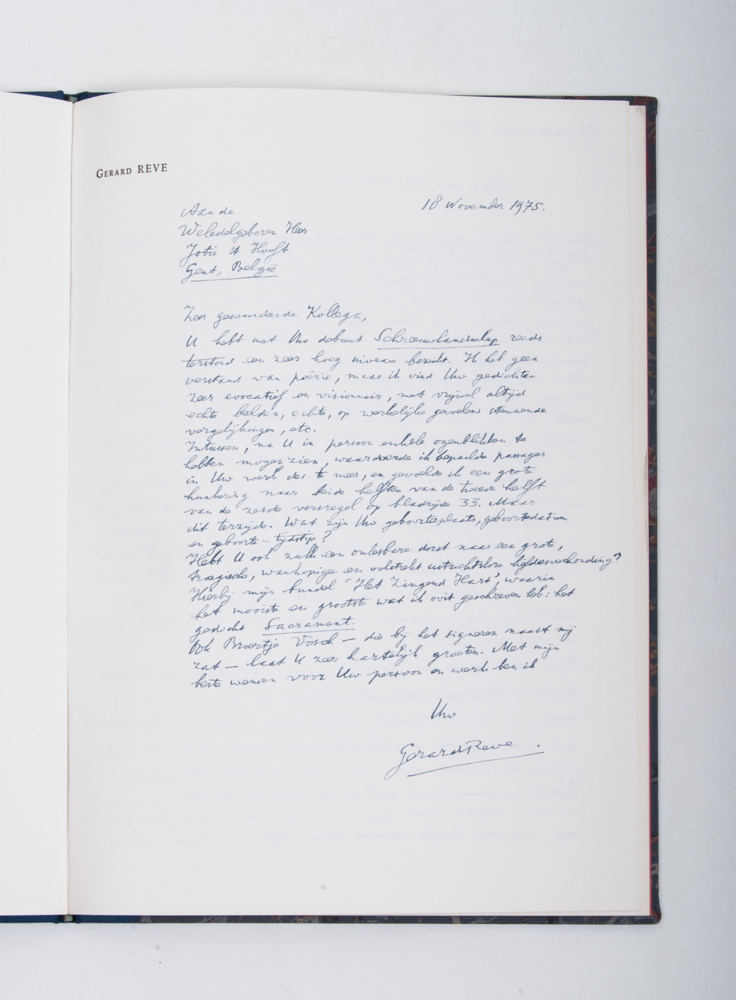 GERARD REVE
18 November 1975.
Aan de
Weledelgeboren Heer
Jotie 't Hooft
Gent, België
Zeer gewaardeerde Kollega,
U hebt met Uw debuut Schreeuwlandschap reeds
terstond een zeer hoog niveau bereikt. Ik heb geen
verstand van poëzie, maar ik vind Uw gedichten
zeer evocatief en visionair, met vrijwel altijd
echte beelden, echte, op werkelijke gevoelens steunende
vergelijkingen, etc.
Intussen, na U in persoon enkele ogenblikken te
hebben mogen zien, waardeerde ik bepaalde passages
in Uw werk des te meer, en gevoelde ik een grote
hunkering naar beide helften van de tweede helft
van de zesde versregel op bladzijde 33. Maar
dit terzijde. Wat zijn Uw geboorteplaats, geboortedatum
en geboorte-tijdstip?
Hebt U ook zulk een onlesbare dorst naar een grote,
tragische, wanhopige en volstrekt uitzichtloze liefdesverhouding?
Hierbij mijn bundel 'Het Zingend Hart', waarin
het mooiste en grootste wat ik ooit geschreven heb: het
gedicht Sacrament.
Ook Broertje Vosch — die bij het signeren naast mij
zat — laat U zeer hartelijk groeten. Met mijn
beste wensen voor Uw persoon en werk ben ik
Uw
Gerard Reve.